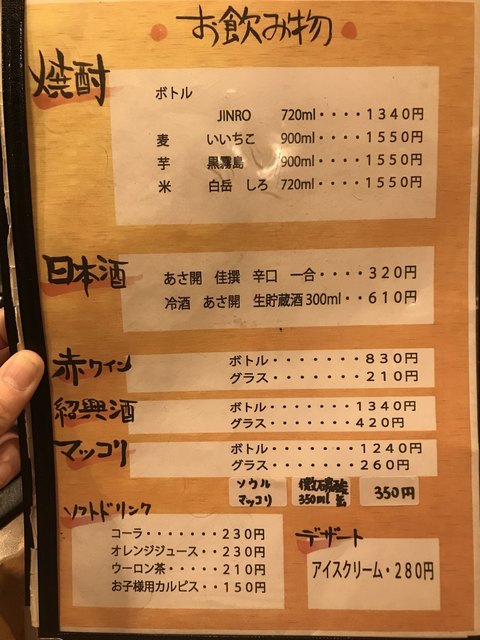 お飲み物
焼酎
ボトル
JINRO 720ml・・・・1340円
麦 いいちこ 900ml・・・・1550円
芋 黒霧島 900ml・・・・1550円
米 白岳 しろ 720ml・・・・1550円
日本酒
あさ開 佳撰 辛口 一合・・・・320円
冷酒 あさ開 生貯蔵酒300ml・・610円
赤ワイン
ボトル・・・・・・・830円
グラス・・・・・・・210円
紹興酒
ボトル・・・・・・・1340円
グラス・・・・・・・420円
マッコリ
ボトル・・・・・・・1240円
グラス・・・・・・・260円
ソウル
マッコリ
微炭酸
350ml 缶
350円
ソフトドリンク
コーラ・・・・・・・230円
オレンジジュース・・230円
ウーロン茶・・・・・210円
お子様用カルピス・・150円
デザート
アイスクリーム・280円